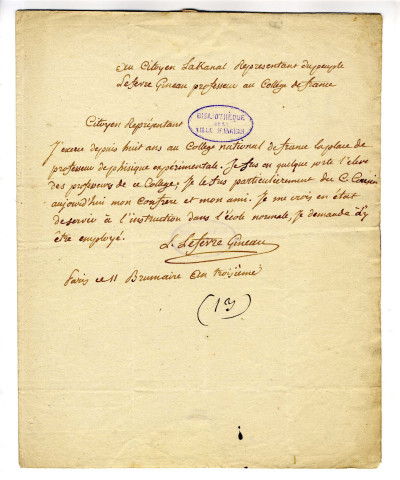 Au Citoyen Lakanal Representant du peuple
Lefevre Gineau professeur au College de france
Citoyen Représentant
BIBLIOTHÈQUE
DE LA
VILLE D'ANGERS
J'exerce depuis huit ans au College national de france la place de
professeur de phisique expérimentale. Je fus en quelque sorte l'élève
des professeurs de ce College; je le fus particulièrement du C. Cousin
aujourd'hui mon confrere et mon ami. je me crois en état
de servir à l'instruction dans l'école normale, je demande d'y
être employé.
L. Lefevre Gineau
Paris ce 11 Brumaire an troisième
(13)